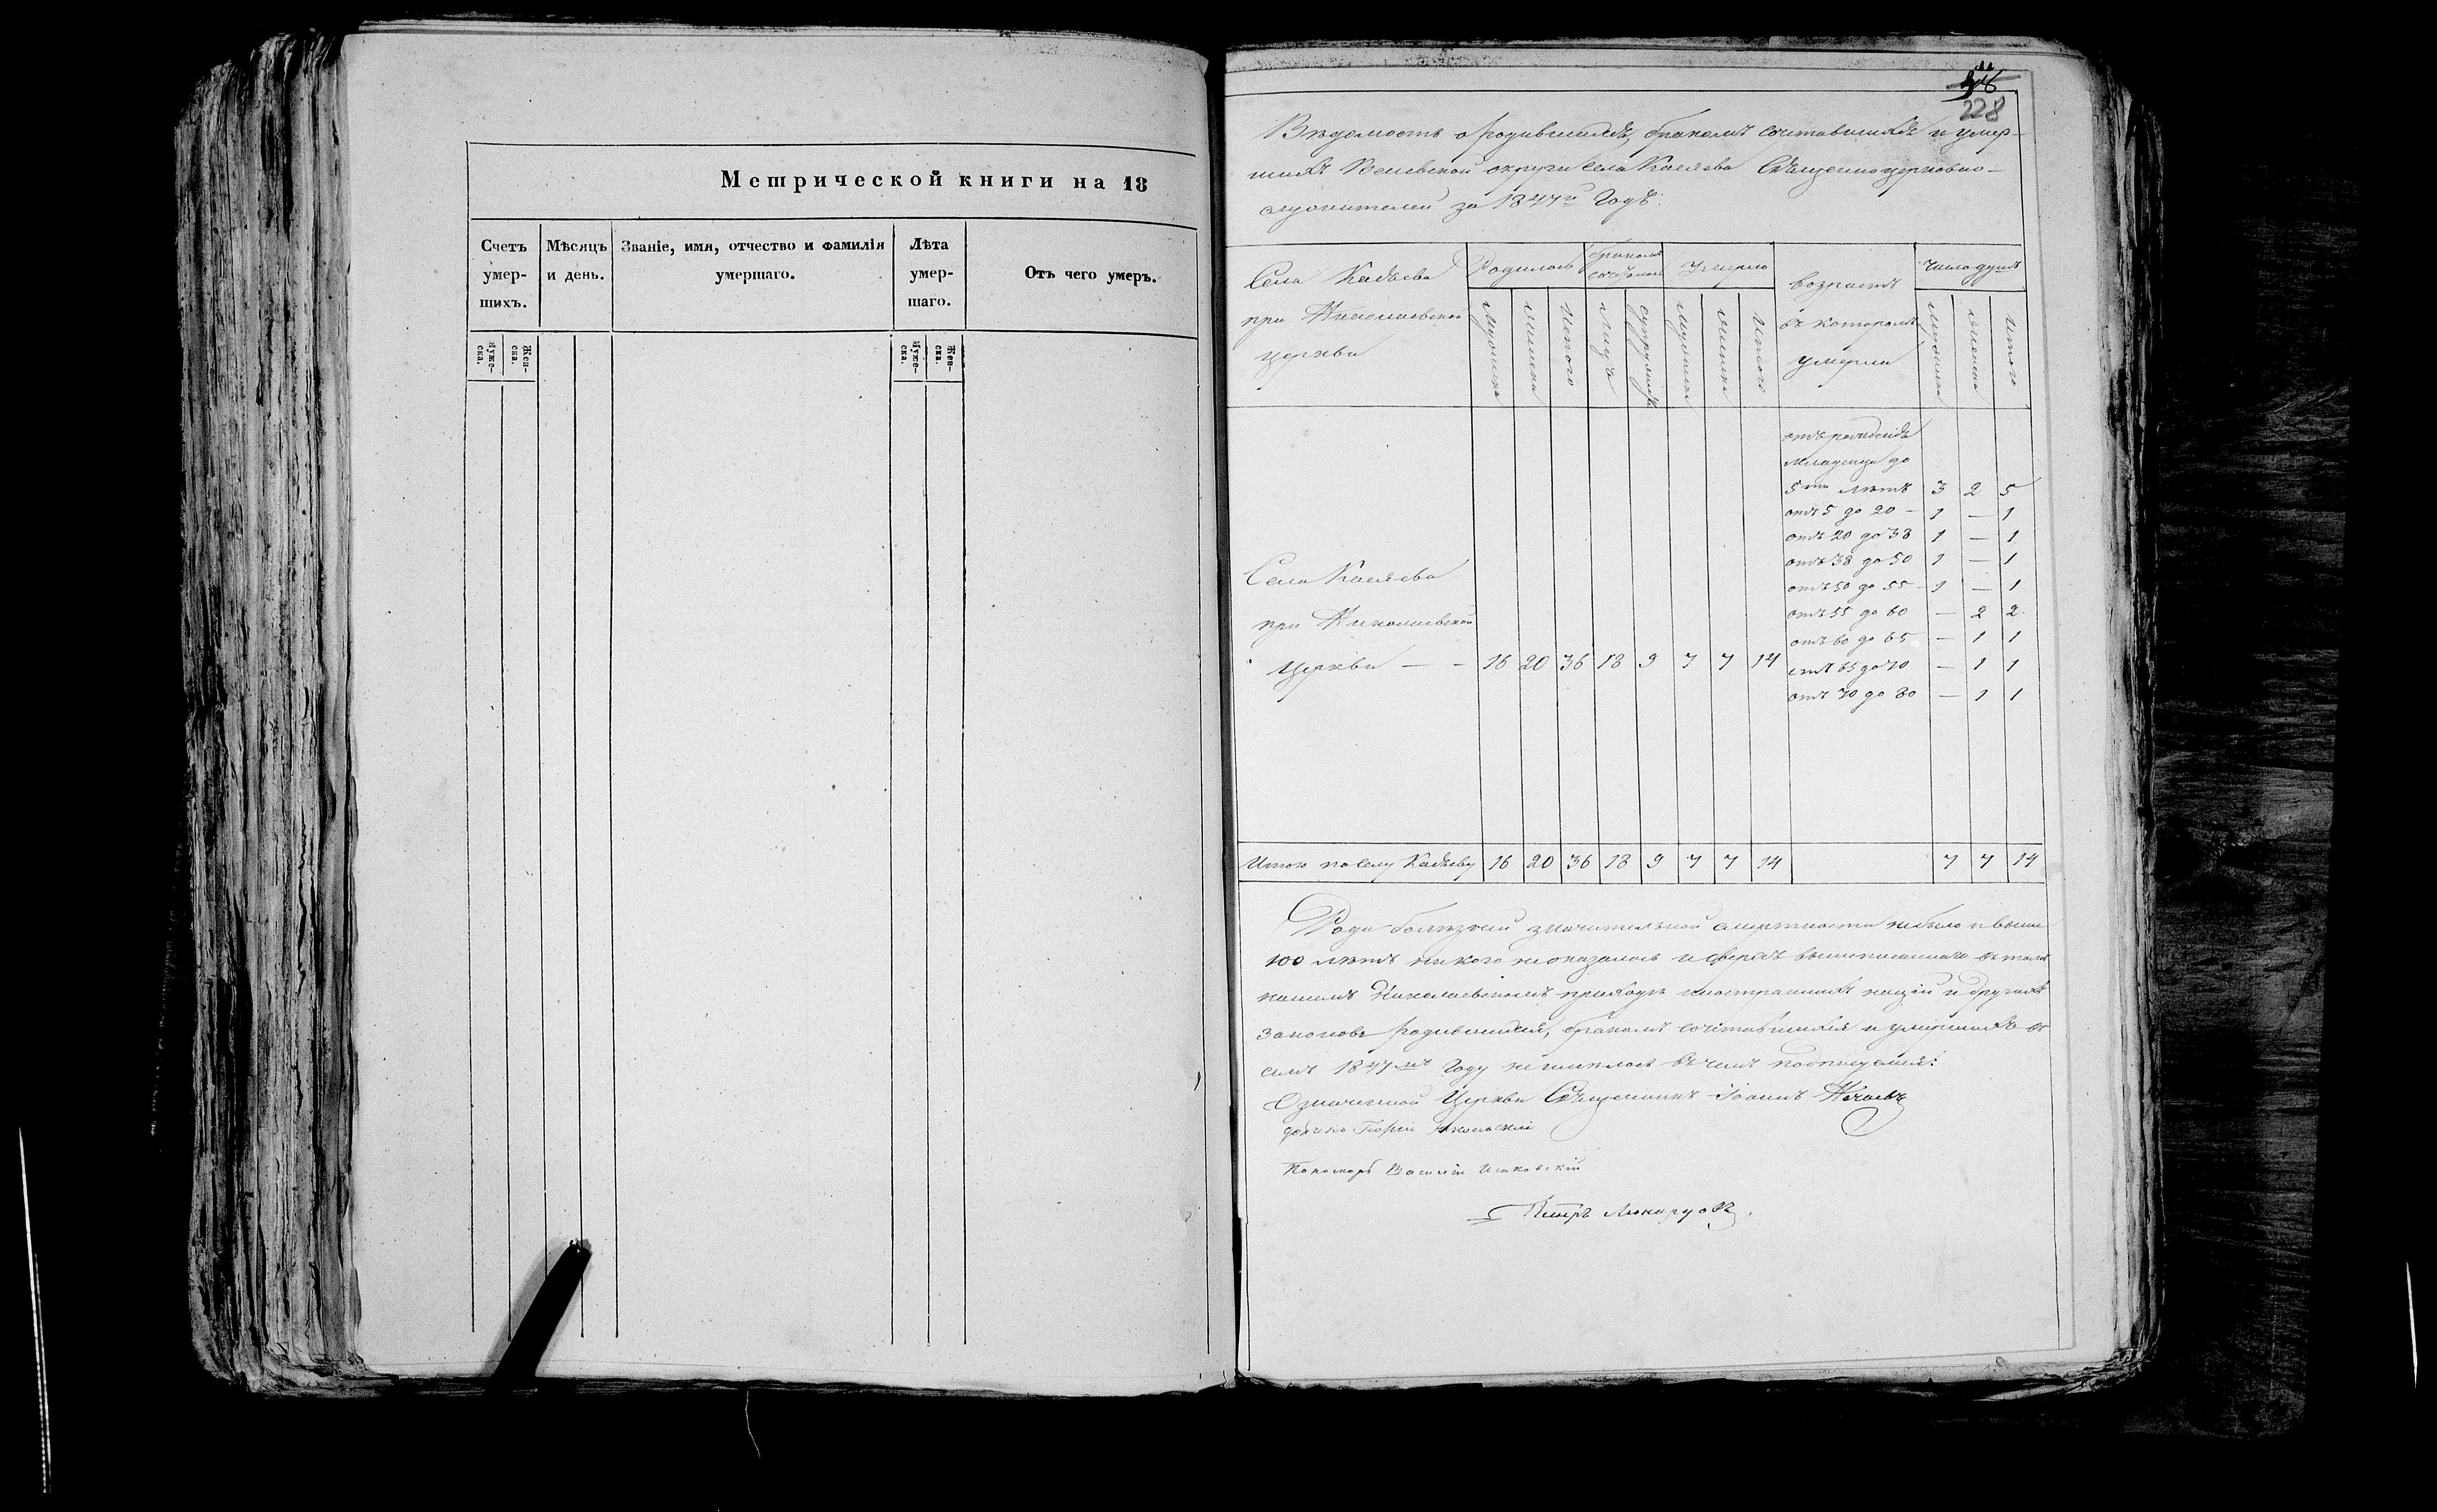 Метрической книги на 18
Счетъ умер-шихъ. Мѣсяцъ и день. Званіе, имя, отчество и фамилія умершаго. Лѣта умер-шаго. Отъ чего умеръ.
Муже-ска. Жен-ска. Муже-ска. Жен-ска.
228
Вѣдомость о родившихся, бракомъ сочетавшихся и умер-
шихъ округи села Священноцерковно-
служителей за 1847й Годъ.
Села
при Николаевской
церкви
Родилось бракомъ Умерло возрастъ въ которомъ умерли число душъ
Мужеска Женска Итого Лицъ супружествъ Мужеска Женска Итого Мужеска Женска Итого
отъ
младенца до
5ти лѣтъ 3 2 5
отъ 5 до 20 — 1 — 1
отъ 20 до 38 1 — 1
отъ 38 до 50 1 — 1
отъ 50 до 55 — 1 — 1
отъ 55 до 60 — 2 2
отъ 60 до 65 — 1 1
отъ 65 до 70 — 1 1
отъ 70 до 80 — 1 1
Села
при Николаевской
Церкви — — 16 20 36 18 9 7 7 14
Итого по селу 16 20 36 18 9 7 7 14 7 7 14
Рода болѣзней значительной смертности небыло и выше
100 лѣтъ никого неоказалось и сверхъ вышеписаннаго въ
нашемъ Николаевскомъ приходѣ иностранныхъ націй и другихъ
законовъ родившихся, бракомъ сочетавшихся и умершихъ въ
семъ 1847мъ Году неимелось въ чемъ подписуемся:
Означенной Церкви Священникъ Іоаннъ
Никольскій
Пономарь Василій
Петръ